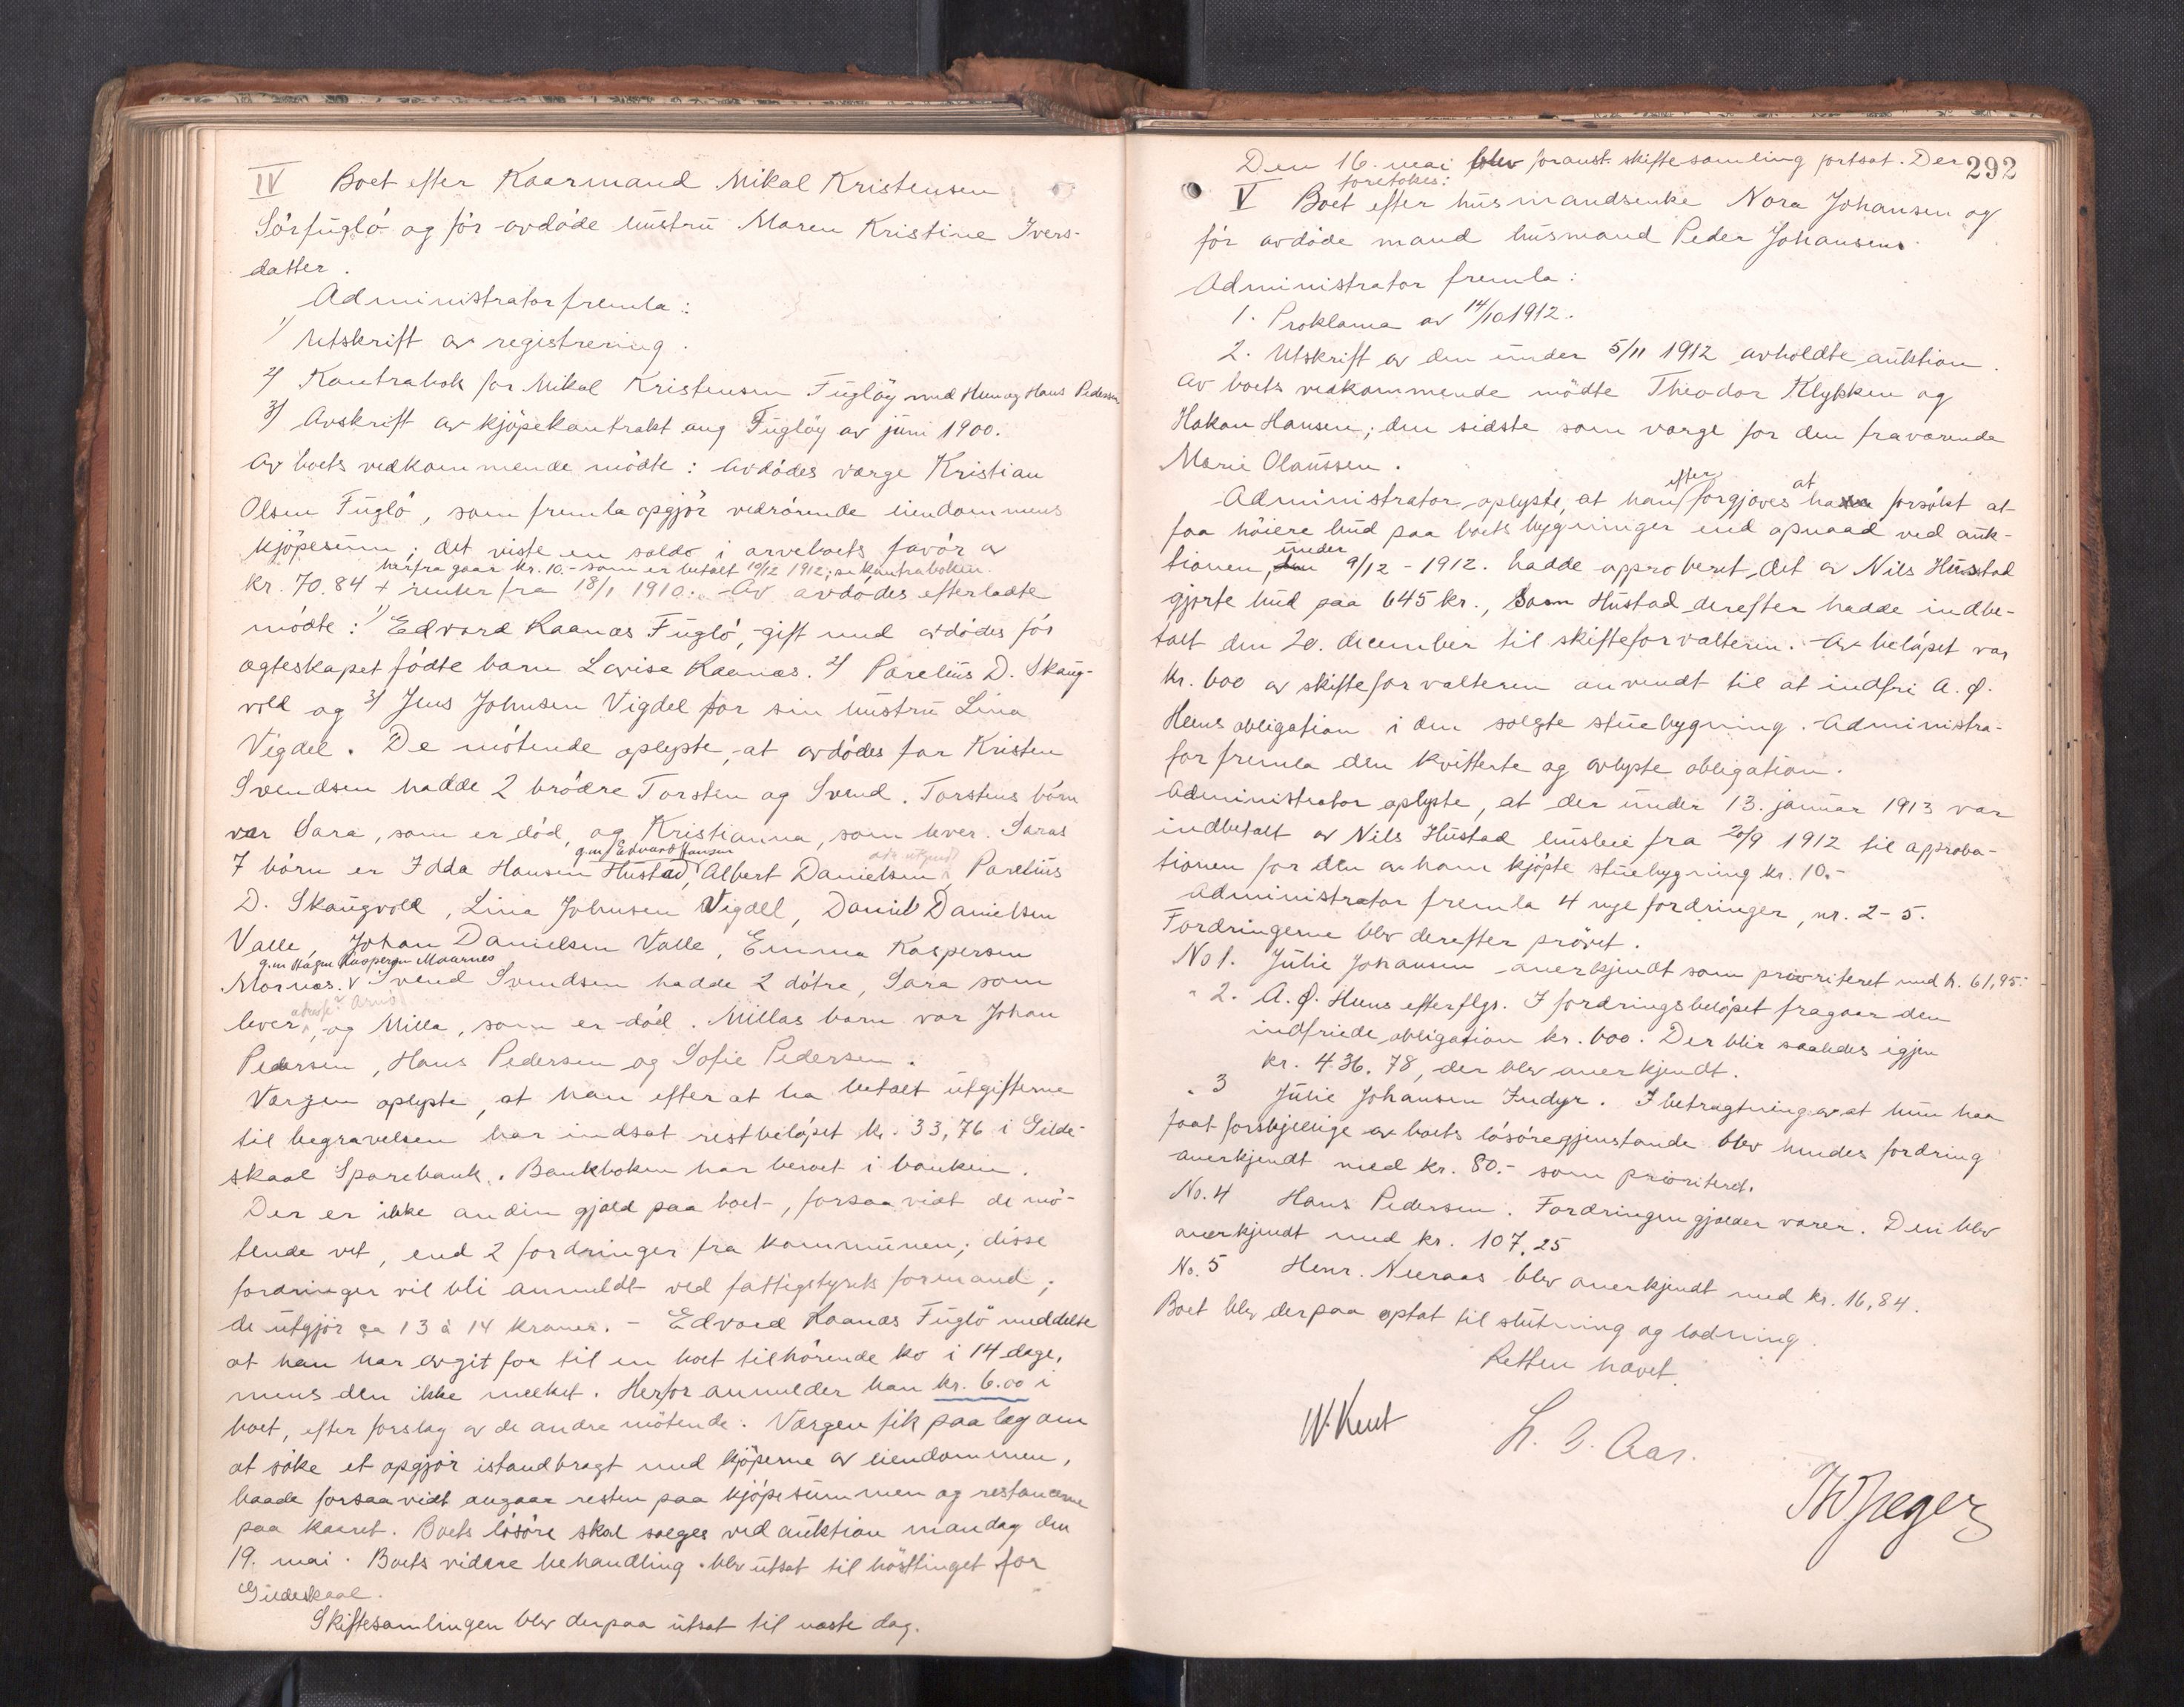 IV Boet efter Kaarmand Mikal Kristensen
Sörfuglö og för avdöde hustru Maren Kristine Ivers-
datter.
Administrator fremla:
1) Utskrift av registrering.
2) Kontrabok for Mikal Kristensen Fugløy med Huus og Hans Pedersen
3) Avskrift av kjöpekontrakt ang Fugløy av juni 1900.
Av boets vedkommende mödte: Avdödes værge Kristian
Olsen Fuglö, som fremla opgjör vedrörende eiendommens
kjöpesum; det viste en saldo i arveboets favör av
herfra gaar kr. 10.- som er betalt 10/12 1912; se kontraboken.
kr. 70.84 + renter fra 18/1 1910. Av avdödes efterladte
mödte: 1) Edvard Kaanæs Fuglö, gift med avdödes för
ægteskapet födte barn Lovise Kaanæs. 2) Parelius D. Skaug-
vold og 3) Jens Johnsen Vigdel for sin hustru Lina
Vigdel. De mötende oplyste, at avdödes far Kristen
Svendsen hadde 2 brödre Torsten og Svend. Torstens börn
var Sara, som er död, og Kristianna, som lever. Saras
g.m. Edvard Hansen
7 börn er Idda Hansen Hustad, Albert Danielsen, Parelius
D. Skaugvold, Lina Johnsen Vigdel, Daniel Danielsen
Valle, Johan Danielsen Valle, Emma Kaspersen
g.m. Hågen Kaspersen Maarnes
Mornæs. v Svend Svendsen hadde 2 dötre, Sara som
adresse? Arnö
lever, og Milla, som er död. Millas barn var Johan
Pedersen, Hans Pedersen og Sofie Pedersen.
Værgen oplyste, at han efter at ha betalt utgifterne
til begravelsen har indsat restbelöpet kr. 33,76 i Gilde-
skaal Sparebank. Bankboken har beroet i banken.
Der er ikke anden gjæld paa boet, forsaavidt de mö-
tende vet, end 2 fordringer fra kommunen; disse
fordringer vil bli anmeldt ved fattigstyrets formand;
de utgjör ca 13 à 14 kroner. - Edvard Kaanæs Fuglö meddelte
at han har avgit for til en boet tilhörende ko i 14 dage,
mens den ikke melket. Herfor anmelder han kr. 6.00 i
boet, efter forslag av de andre mötende. Værgen fik paalæg om
at söke et opgjör istandbragt med kjöperne av eiendommen,
baade forsaavidt angaar resten paa kjöpesummen og restancerne
paa kaaret. Boets lösöre skal sælges ved auktion mandag den
19. mai. Boets videre behandling blev utsat til hösttinget for
Gildeskaal.
Skiftesamlingen blev derpaa utsat til næste dag.
292
Den 16. mai blev foranst. skiftesamling fortsat. Der
foretokes:
V Boet efter husmandsenke Nora Johansen og
för avdöde mand husmand Peder Johansens
Administrator fremla:
1. Proklama av 14/10 1912.
2. Utskrift av den under 5/11 1912 avholdte auktion.
Av boets vedkommende mödte Theodor Klykken og
Hakon Hansen; den sidste som værge for den fraværende
Marie Olaussen.
efter at
Administrator oplyste, at han forgjæves ha forsökt at
faa höiere bud paa boets bygninger end opnaad ved auk-
under
tionen, den 9/12 - 1912. hadde approberet det av Nils Hustad
gjorte bud paa 645 kr., som Hustad derefter hadde indbe-
talt den 20. december til skifteforvalteren. Av belöpet var
kr. 600 av skifteforvalteren anvendt til at indfri A. Ø.
Huus obligation i den solgte stuebygning. Administra-
tor fremla den kvitterte og avlyste obligation.
Administrator oplyste, at der under 13. januar 1913 var
indbetalt av Nils Hustad husleie fra 20/9 1912 til approba-
tionen for den av ham kjöpte stuebygning kr. 10.-
Administrator fremla 4 nye fordringer, nr. 2-5.
Fordringerne blev derefter prövet.
No 1. Julie Johansen anerkjendt som prioriteret med kr. 61,95.
" 2. A. Ø. Huus efterflgs. I fordringsbelöpet fragaar den
indfriede obligation kr. 600. Der blir saaledes igjen
kr. 436,78, der blev anerkjendt.
" 3 Julie Johansen Indyr. I betragtning av at hun har
faat forskjellige av boets lösöregjenstande blev hendes fordring
anerkjendt med kr. 80.- som prioriteret.
No. 4 Hans Pedersen. Fordringen gjælder varer. Den blev
anerkjendt med kr. 107,25
No. 5 Henr. Neeraas blev anerkjendt med kr. 16,84.
Boet blev derpaa optat til slutning og lodning.
Retten hævet.
W. Kent
L. J. Aas.
Th Jæger